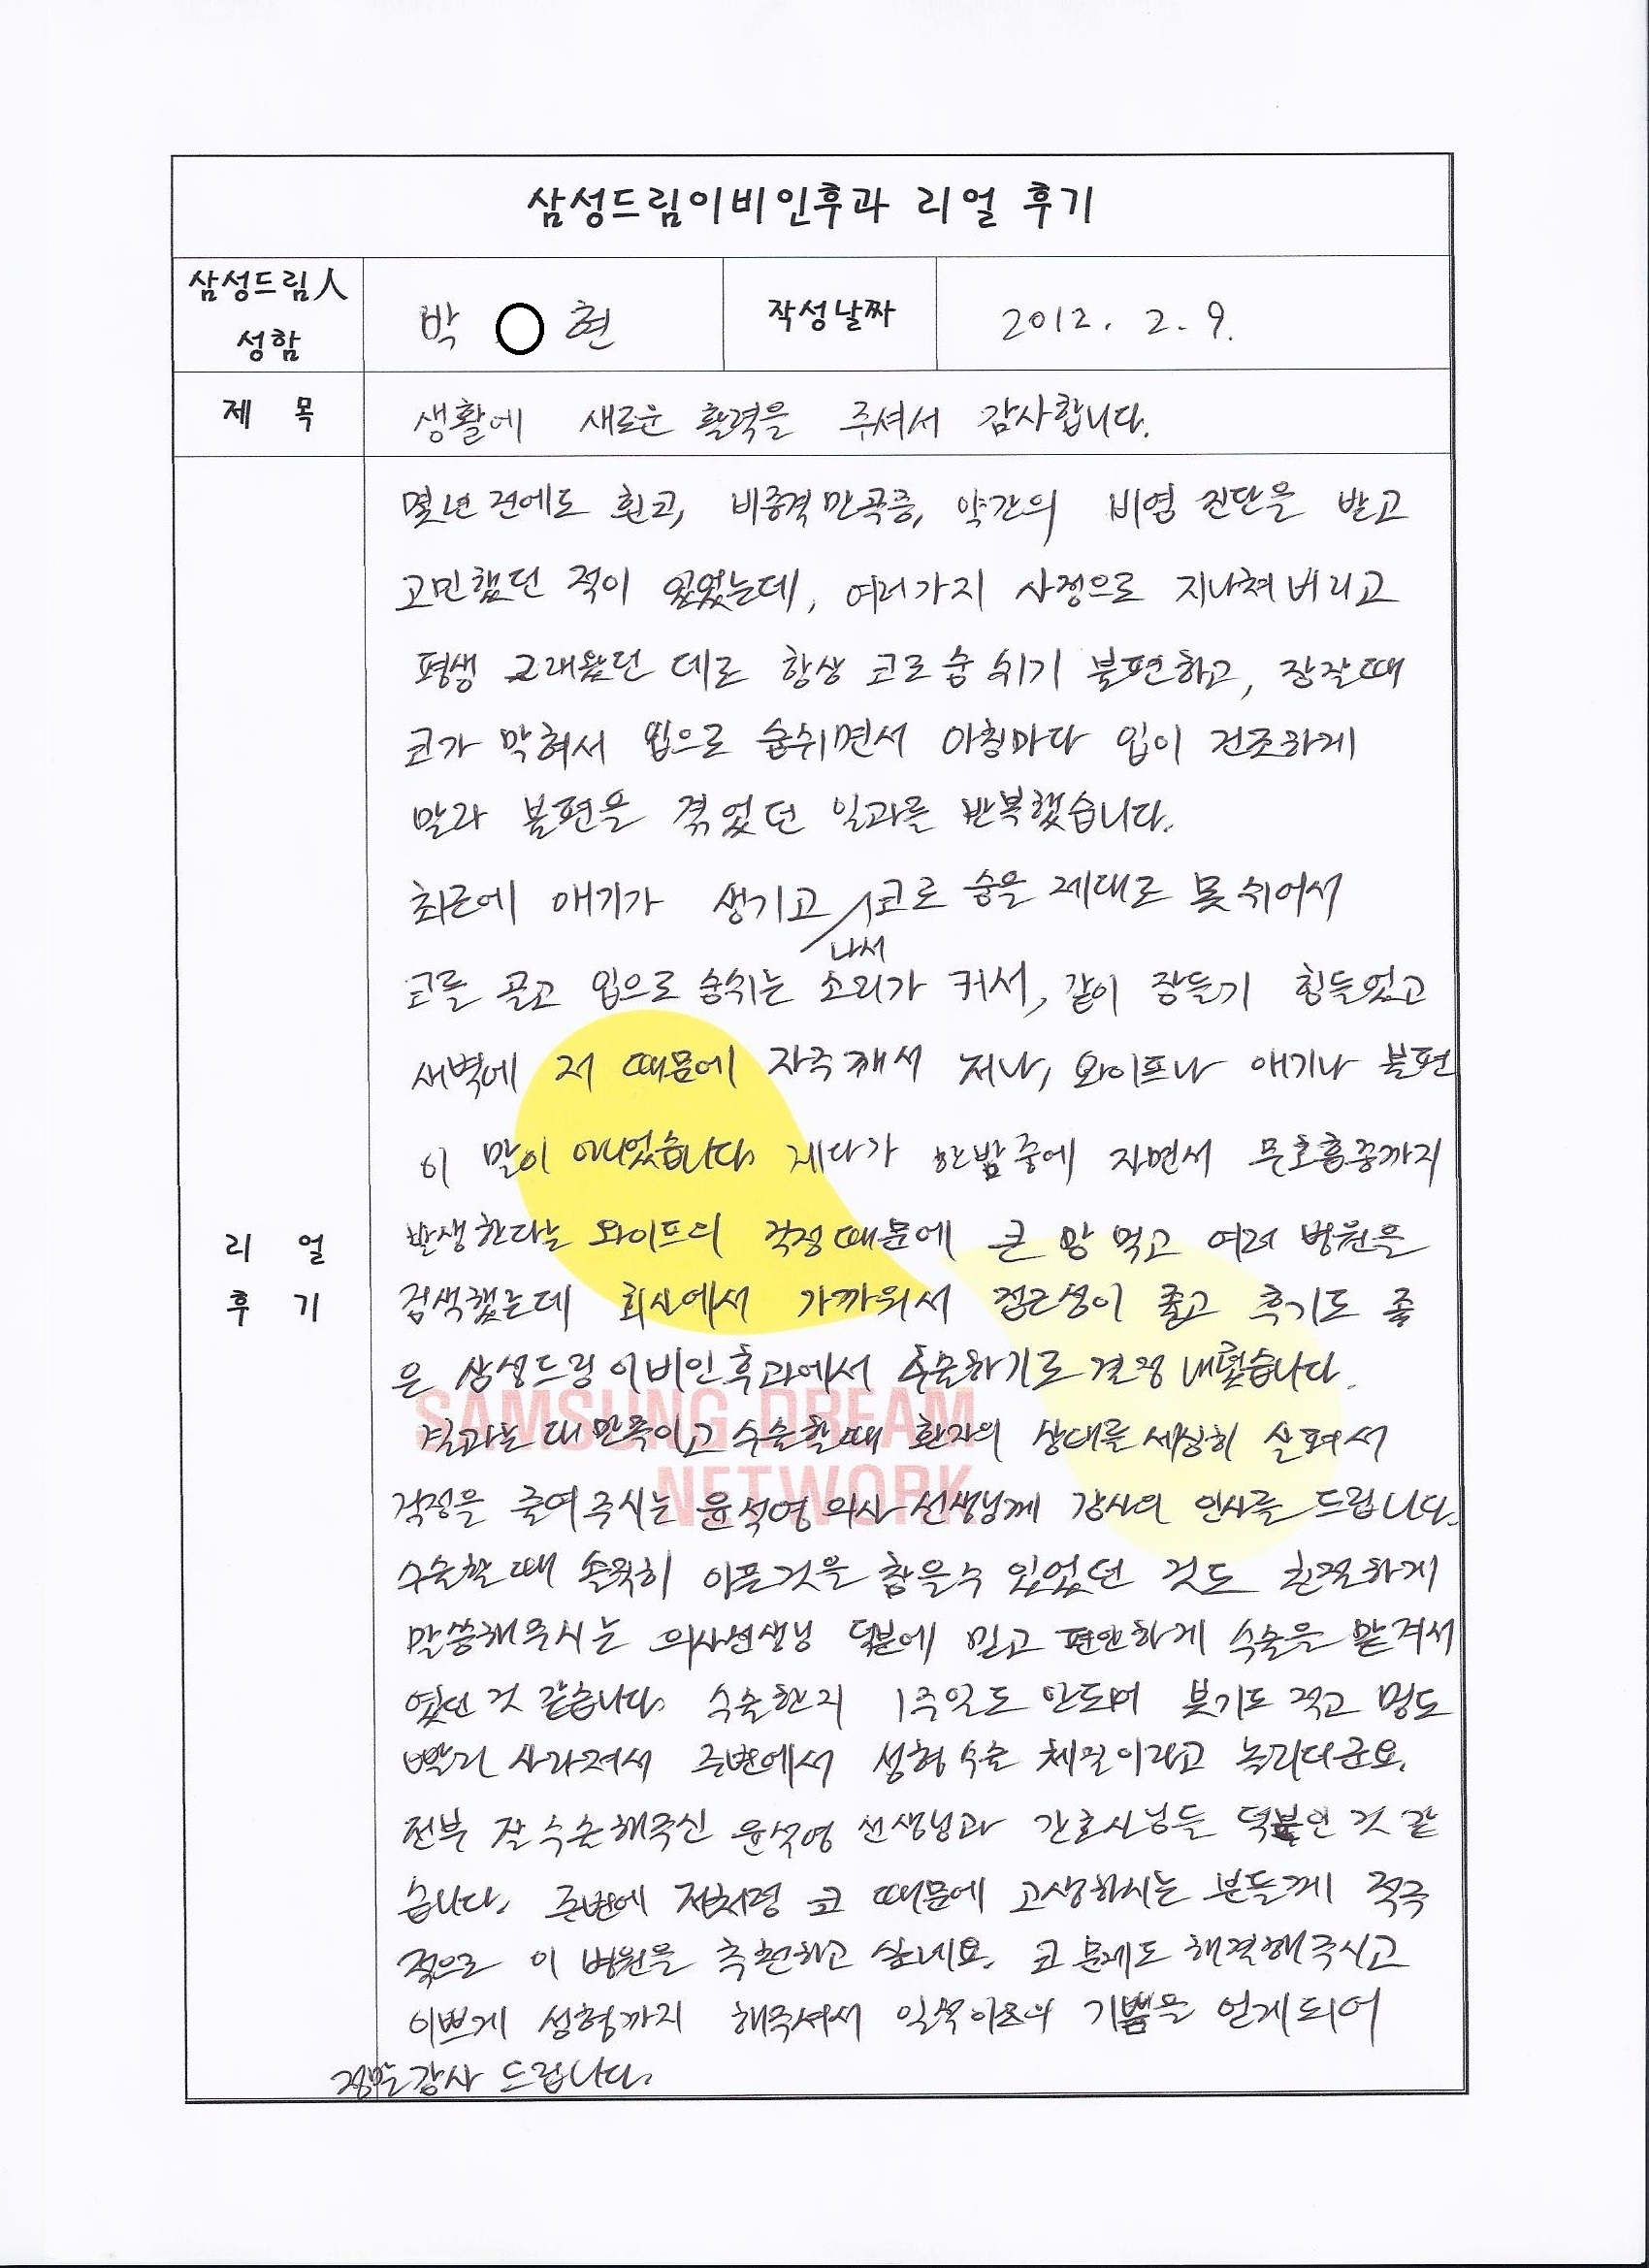 삼성드림이비인후과 리얼 후기
삼성드림人
성함
박 현
작성날짜
2012. 2. 9.
제 목
생활에 새로운 활력을 주셔서 감사합니다.
리 얼
후 기
몇년 전에도 휜코, 비중격만곡증, 약간의 비염 진단을 받고
고민했던 적이 있었는데, 여러가지 사정으로 지나쳐버리고
평생 그래왔던 데로 항상 코로 숨 쉬기 불편하고, 잠잘때
코가 막혀서 입으로 숨쉬면서 아침마다 입이 건조하게
말라 불편을 겪었던 일과를 반복했습니다.
최근에 애기가 생기고 나서 코로 숨을 제대로 못 쉬어서
코를 골고 입으로 숨쉬는 소리가 커서, 같이 잠들기 힘들었고
새벽에 저 때문에 자주 깨서 저나, 와이프나 애기나 불편
이 말이 아니었습니다. 게다가 한밤중에 자면서 무호흡증까지
발생한다는 와이프의 걱정때문에 큰 맘 먹고 여러 병원을
검색했는데 회사에서 가까워서 접근성이 좋고 후기도 좋
은 삼성드림이비인후과에서 수술하기로 결정 내렸습니다.
결과는 대만족이고 수술할때 환자의 상태를 세심히 살펴서
걱정을 줄여주시는 윤석영 의사 선생님께 감사의 인사를 드립니다.
수술할 때 솔직히 아픈것을 참을수 있었던 것도 친절하게
말씀해주시는 의사선생님 덕분에 믿고 편안하게 수술을 맡겨서
였던 것 같습니다. 수술한지 1주일도 안되어 붓기도 적고 멍도
빨리 사라져서 주변에서 성형수술 체질이라고 놀리더군요.
전부 잘 수술해주신 윤석영 선생님과 간호사님들 덕분인 것 같
습니다. 주변에 저처럼 코 때문에 고생하시는 분들께 적극
적으로 이 병원을 추천하고 싶네요. 코 문제도 해결해주시고
이쁘게 성형까지 해주셔서 일석이조의 기쁨을 얻게되어
정말 감사 드립니다.
SAMSUNG DREAM
NETWORK